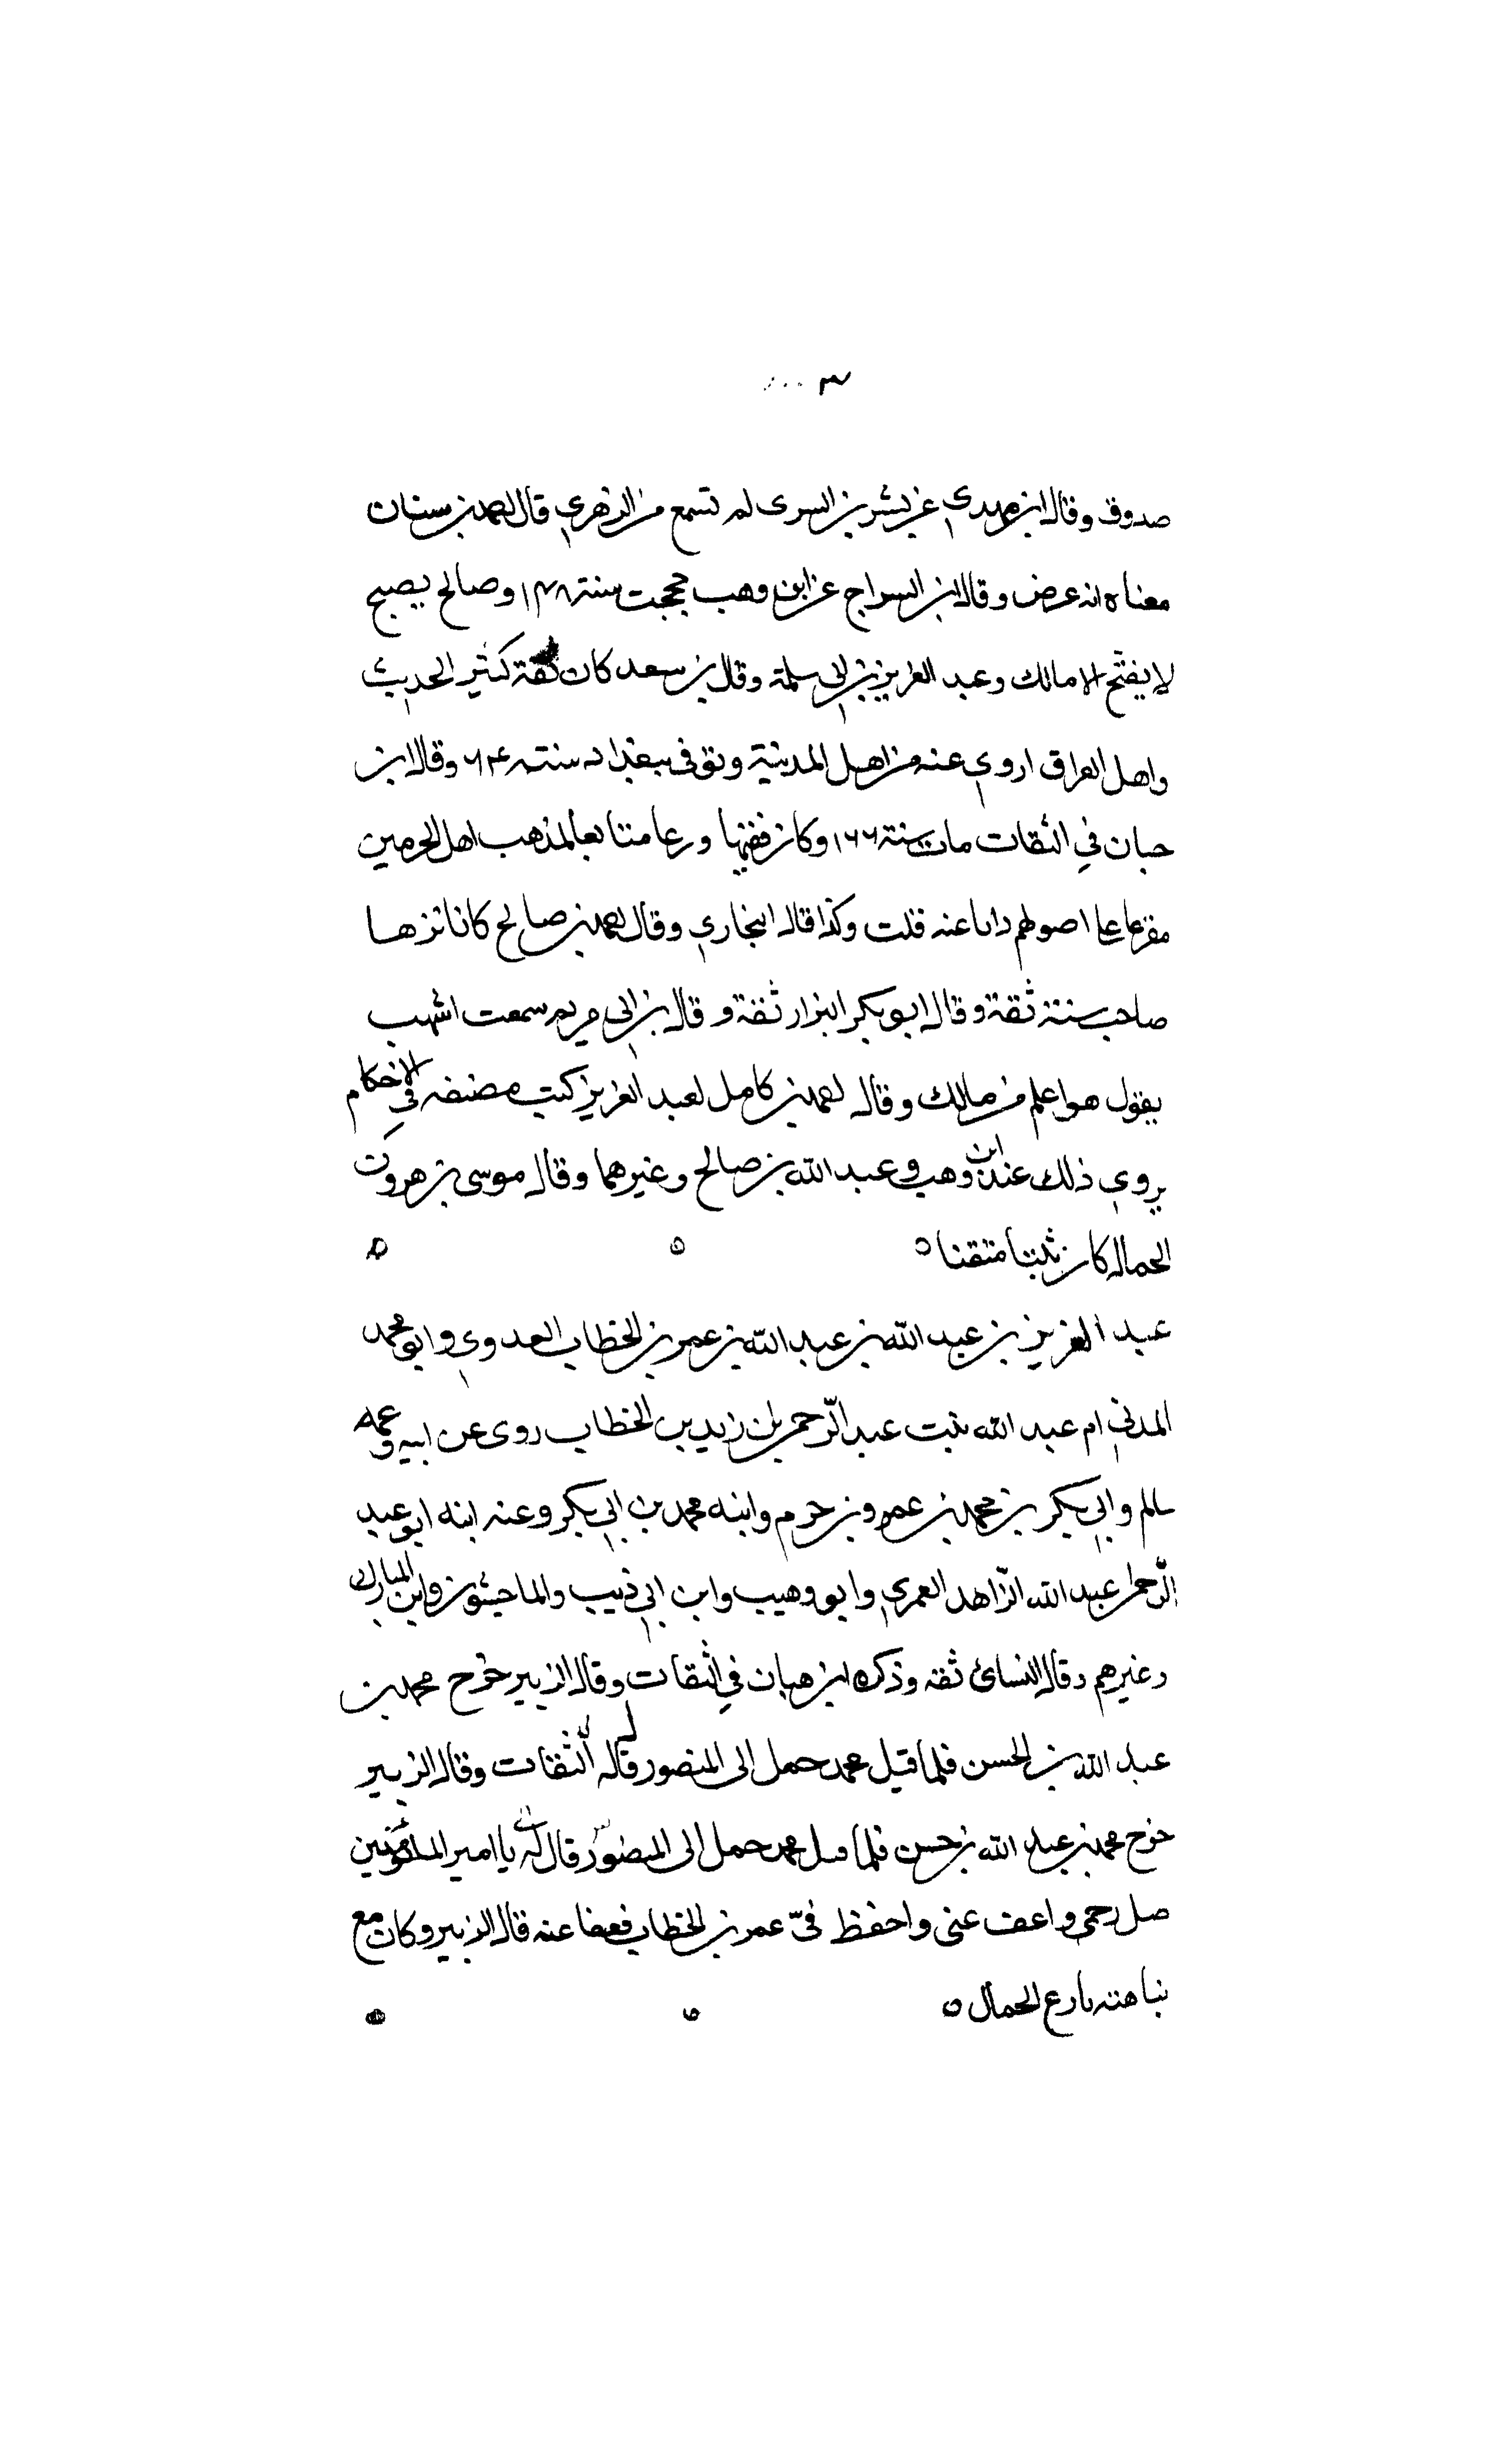 ٣
صدوق وقال ابن مهدي عن بشر بن السرى لم تسمع من الزهري قال احمد بن سنان
معناه انه عرض وقال ابن السراج عن ابن وهب حججت سنة ١٤٨ وصالح يصيح
لا يفتح الا مالك وعبد العزيز بن ابي سلمة وقال بن سعد كان ثقة كثير الحديث
واهل العراق اروي عنه من اهل المدينة وتوفى ببغداد سنة ٦٤ وقال ابن
حبان في الثقات مات سنة ١٦٦ وكان فقيها ورعا متابعا لمذهب اهل الحرمين
مفرعا على اصولهم ذابا عنه قلت وكذا قال البخاري وقال احمد بن صالح كان نزها
صاحب سنة ثقة وقال ابو بكر البزار ثقة وقال بن ابي مريم سمعت اشهب
يقول هو اعلم من مالك وقال احمد بن كامل لعبد العزيز كتب مصنفه في الاحكام
يروي ذلك عنه ابن وهب وعبد الله بن صالح وغيرهما وقال موسى بن هرون
الحمال كان ثبتا متقنا ه ه ه
عبد العزيز بن عبد الله بن عبد الله بن عمر بن الخطاب العدوي وابو محمد
المدني ام عبد الله بنت عبد الرّحمن بن زيد بن الخطاب روى عن ابيه وعمه
سالم وابي بكر بن محمد بن عمرو بن حزم وابنه محمد بن ابي بكر وعنه ابنه ابو عبد
الرّحمن عبد الله الزّاهد العمري وابو وهيب وابن ابي ذيب والماجشون وابن المبارك
وغيرهم وقال النسائ ثقه وذكره ابن حبان في الثقات وقال الزبير خرج محمد بن
عبد الله بن الحسن فلما قتيل محمد حمل الى المنصور قال له الثقات وقال الزبير
خرج محمد بن عبد الله بن حسن فلما قتل محمد حمل الى المنصور قال له يا امير المومنين
صل رحمي واعف عنى واحفظ فىّ عمر بن الخطاب فعفا عنه قال الزبير وكان مع
نباهته بارع الجمال ه ه ه